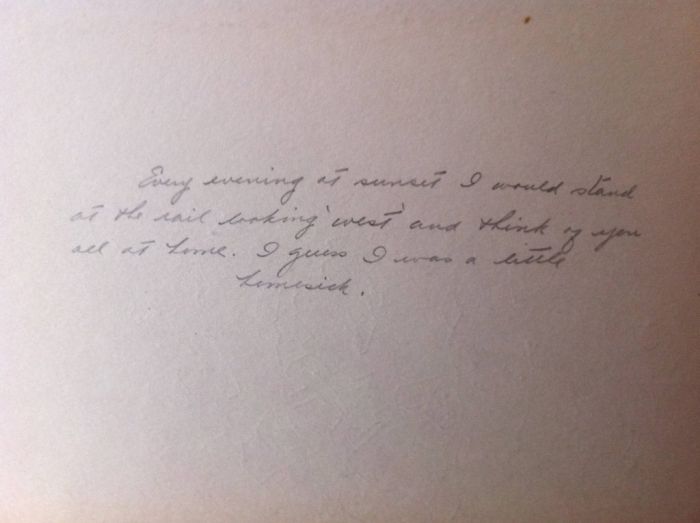 Every evening at sunset I would stand
at the rail looking west and think of you
all at home. I guess I was a little
homesick.